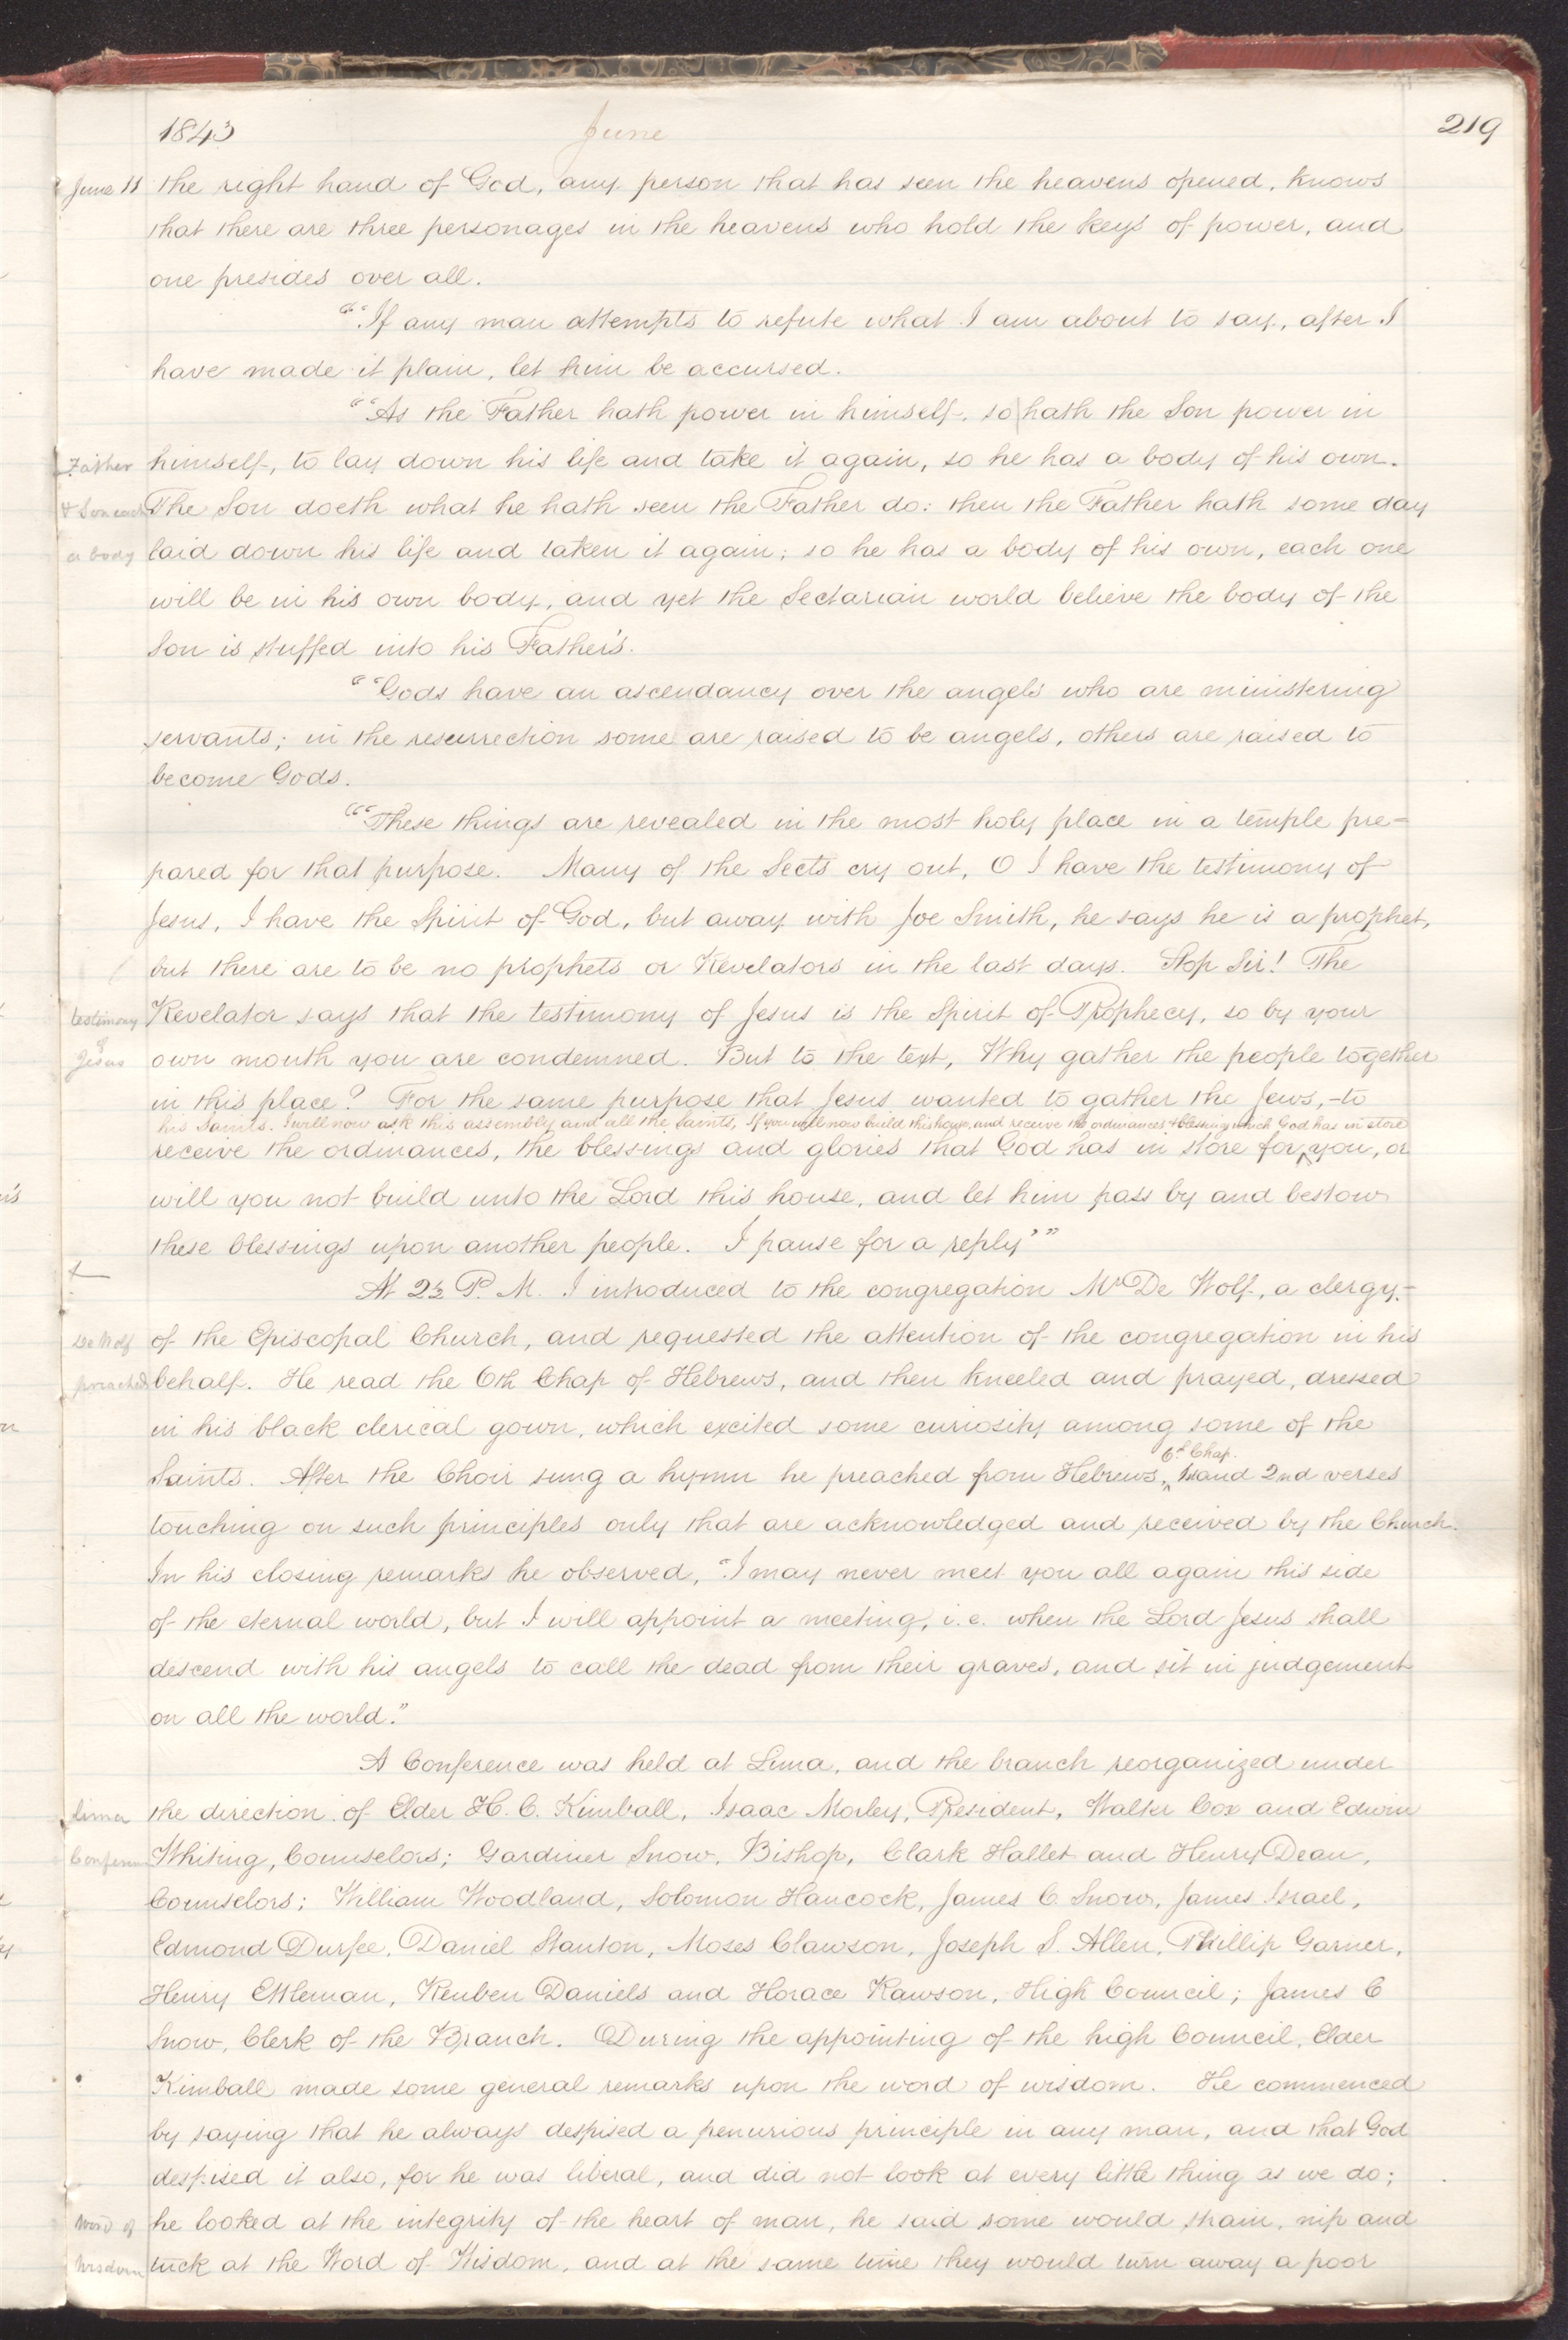 1843 June 219
June 11 the right hand of God, any person that has seen the heavens opened, knows
that there are three personages in the heavens who hold the keys of power, and
one presides over all.
"“If any man attempts to refute what I am about to say, after I
have made it plain, let him be accursed.
"“As the Father hath power in himself, so hath the Son power in
Father himself, to lay down his life and take it again, so he has a body of his own.
& Son each The Son doeth what he hath seen the Father do: then the Father hath some day
a body laid down his life and taken it again; so he has a body of his own, each one
will be in his own body, and yet the Sectarian world believe the body of the
Son is stuffed into his Father's.
"“Gods have an ascendancy over the angels who are ministering
servants; in the resurrection some are raised to be angels, others are raised to
become Gods.
"“These things are revealed in the most holy place in a temple pre=
pared for that purpose. Many of the Sects cry out, O I have the testimony of
Jesus, I have the Spirit of God, but away with Joe Smith, he says he is a prophet,
but there are to be no prophets or Revelators in the last days. Stop Sir! The
testimony Revelator says that the testimony of Jesus is the Spirit of Prophecy, so by your
of
Jesus own mouth you are condemned. But to the text, Why gather the people together
in this place? For the same purpose that Jesus wanted to gather the Jews,-to
his Saints. I will now ask this assembly and all the Saints, If you will now build this house, and receive the ordinances & blessings which God has in store
receive the ordinances, the blessings and glories that God has in store for ^ you, or
will you not build unto the Lord this house, and let him pass by and bestow
these blessings upon another people. I pause for a reply’”
At 2½ P. M. I introduced to the congregation Mr De Wolf, a clergy-
De Wolf of the Episcopal Church, and requested the attention of the congregation in his
preached behalf. He read the 6th Chap of Hebrews, and then kneeled and prayed, dressed
in his black clerical gown, which excited some curiosity among some of the
6th Chap.
Saints. After the Choir sung a hymn he preached from Hebrews, ^ 1st and 2nd verses
touching on such principles only that are acknowledged and received by the Church.
In his closing remarks he observed, “I may never meet you all again this side
of the eternal world, but I will appoint a meeting, i.e. when the Lord Jesus shall
descend with his angels to call the dead from their graves, and sit in judgement
on all the world.”
A Conference was held at Lima, and the branch reorganized under
Lima the direction of Elder H. C. Kimball, Isaac Morley, President, Walter Cox and Edwin
Conferen Whiting, Counselors; Gardiner Snow, Bishop, Clark Hallet and Henry Dean,
Counselors; William Woodland, Solomon Hancock, James C Snow, James Israel,
Edmond Durfee, Daniel Stanton, Moses Clawson, Joseph S. Allen, Phillip Garner,
Henry Ettleman, Reuben Daniels and Horace Rawson, High Council; James C
Snow, Clerk of the Branch. During the appointing of the high Council, Elder
Kimball made some general remarks upon the word of wisdom. He commenced
by saying that he always despised a penurious principle in any man, and that God
despised it also, for he was liberal, and did not look at every little thing as we do;
Word of he looked at the integrity of the heart of man, he said some would strain, nip and
Wisdom tuck at the Word of Wisdom, and at the same time they would turn away a poor